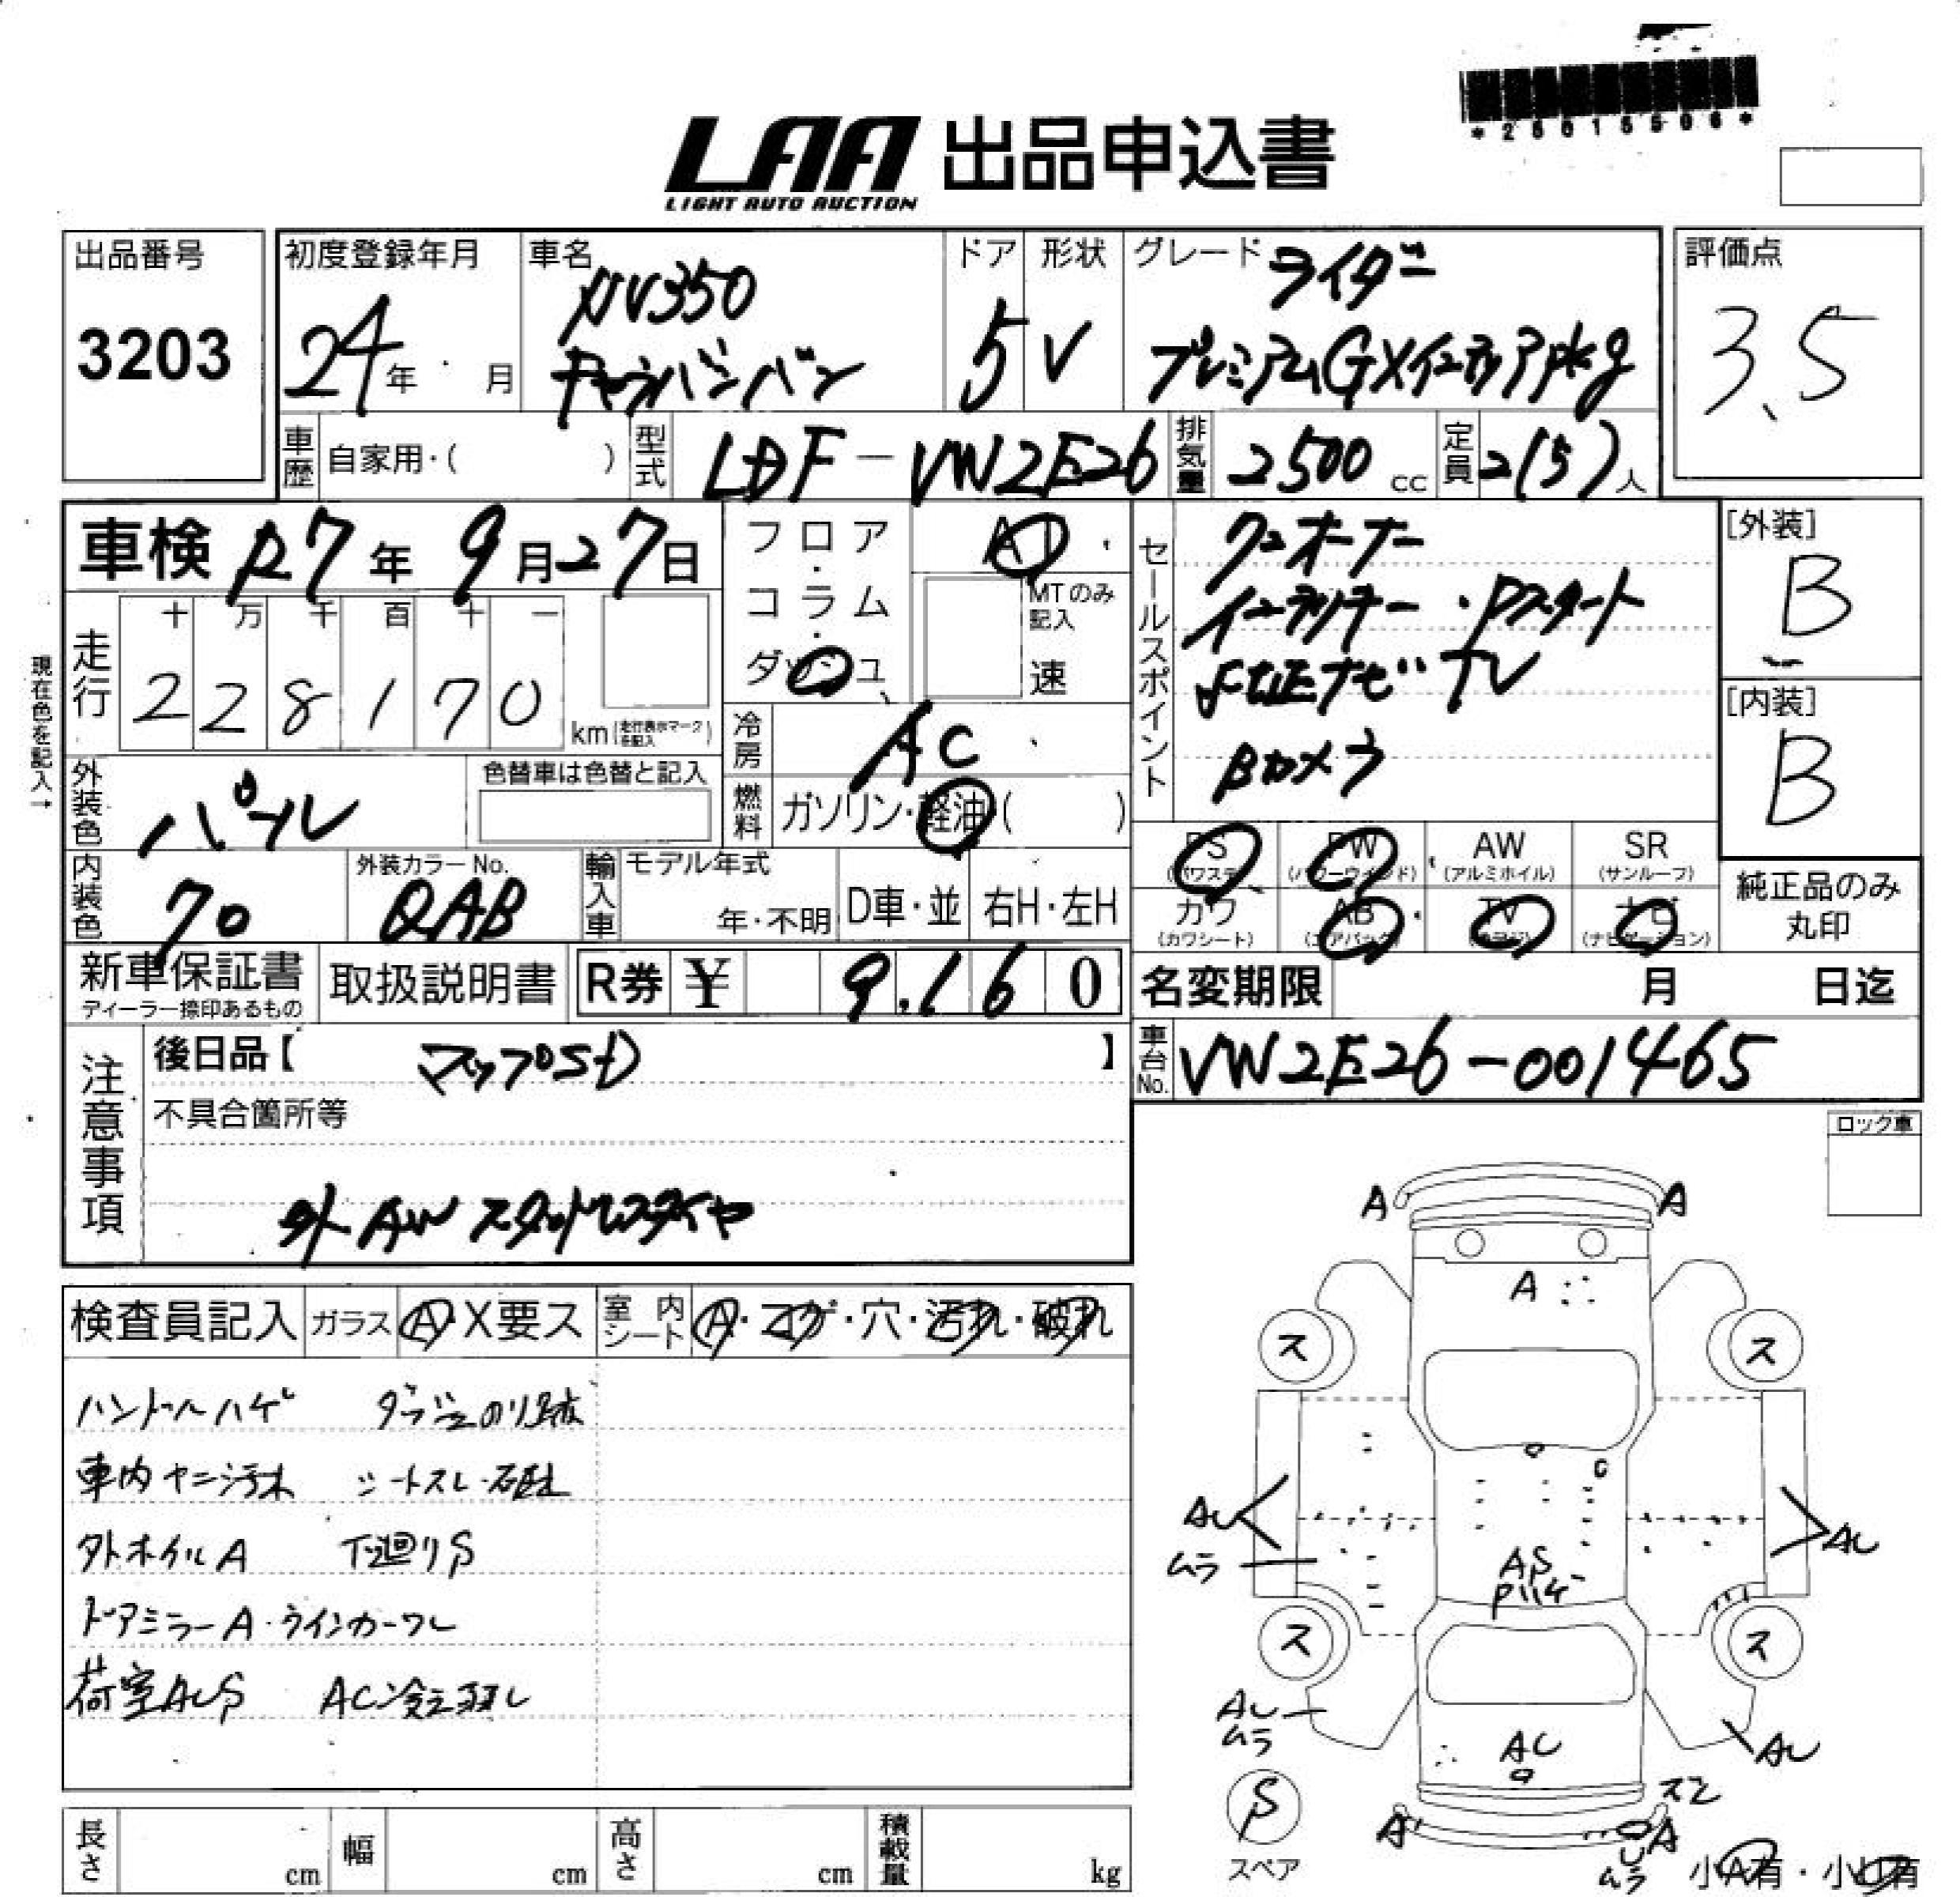 *25015506*
LAA 出品申込書
LIGHT AUTO AUCTION
出品番号
3203
初度登録年月
24年 月
車名
NV350
キャラバンバン
ドア
5
形状
V
グレード ライダー
プレミアムGXインテリアpkg
評価点
3.5
車歴 自家用・( )
型式 LDF-VW2E26
排気量 2500 cc
定員 2(5)人
車検 R7年 9月27日
フロア・コラム・ダッシュ
AT
MTのみ記入
速
走行
十 万 千 百 十 一
2 2 8 1 7 0
km (走行表示マークを記入)
現在色を記入→
冷房 AC
燃料 ガソリン・軽油( )
外装色 パール
色替車は色替と記入
内装色 70
外装カラーNo.
QAB
輸入車
モデル年式
年・不明
D車・並
右H・左H
セールスポイント
ワンオーナー
インテリキー・Pスタート
純正ナビ TV
Bカメラ
[外装]
B
[内装]
B
PS (パワステ)
PW (パワーウィンド)
AW (アルミホイル)
SR (サンルーフ)
カワ (カワシート)
AB (エアバック)
TV (テレビ)
ナビ (ナビゲーション)
純正品のみ
丸印
新車保証書
ディーラー捺印あるもの
取扱説明書
R券 ¥ 9,160
名変期限 月 日迄
車台No. VW2E26-001465
注意事項
後日品【 マップSD 】
不具合箇所等
外AWスタットレスタイヤ
ロック車
検査員記入
ガラス A・X要ス
室内シート A・コゲ・穴・汚れ・破れ
ハンドルハゲ ダッシュのり跡
車内ヤニ汚れ シートスレ・破れ
外ホイルA 下廻りS
ドアミラーA・ウインカーワレ
荷室AUS AC冷え弱し
A A
A
ス ス
AU
AU
ムラ
AS
Pハゲ
ス ス
AU
ムラ
AU
AU
S
スペア
スミ
A
A
U
ムラ
小A有・小U有
長さ cm
幅 cm
高さ cm
積載量 kg